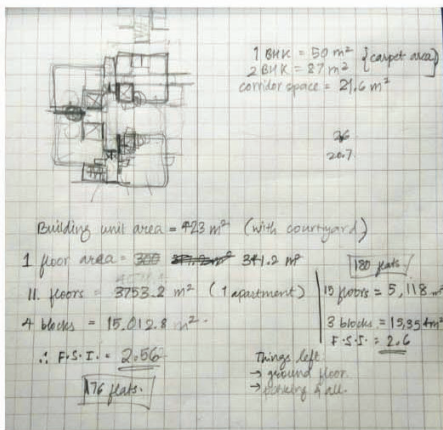 1 BHK = 50 m² {carpet area}
2 BHK = 87 m²
corridor space = 21.6 m²
26
20.7
Building unit area = 423 m² (with courtyard)
1 floor area = 300 341.2 m²
11. floors = 3753.2 m² (1 apartment)
4 blocks = 15,012.8 m².
∴ F.S.I. = 2.56
176 flats.
180 flats
15 floors = 5,118 m²
3 blocks = 15,354 m²
F.S.I. = 2.6
Things left:
→ ground floor
→ parking & all.